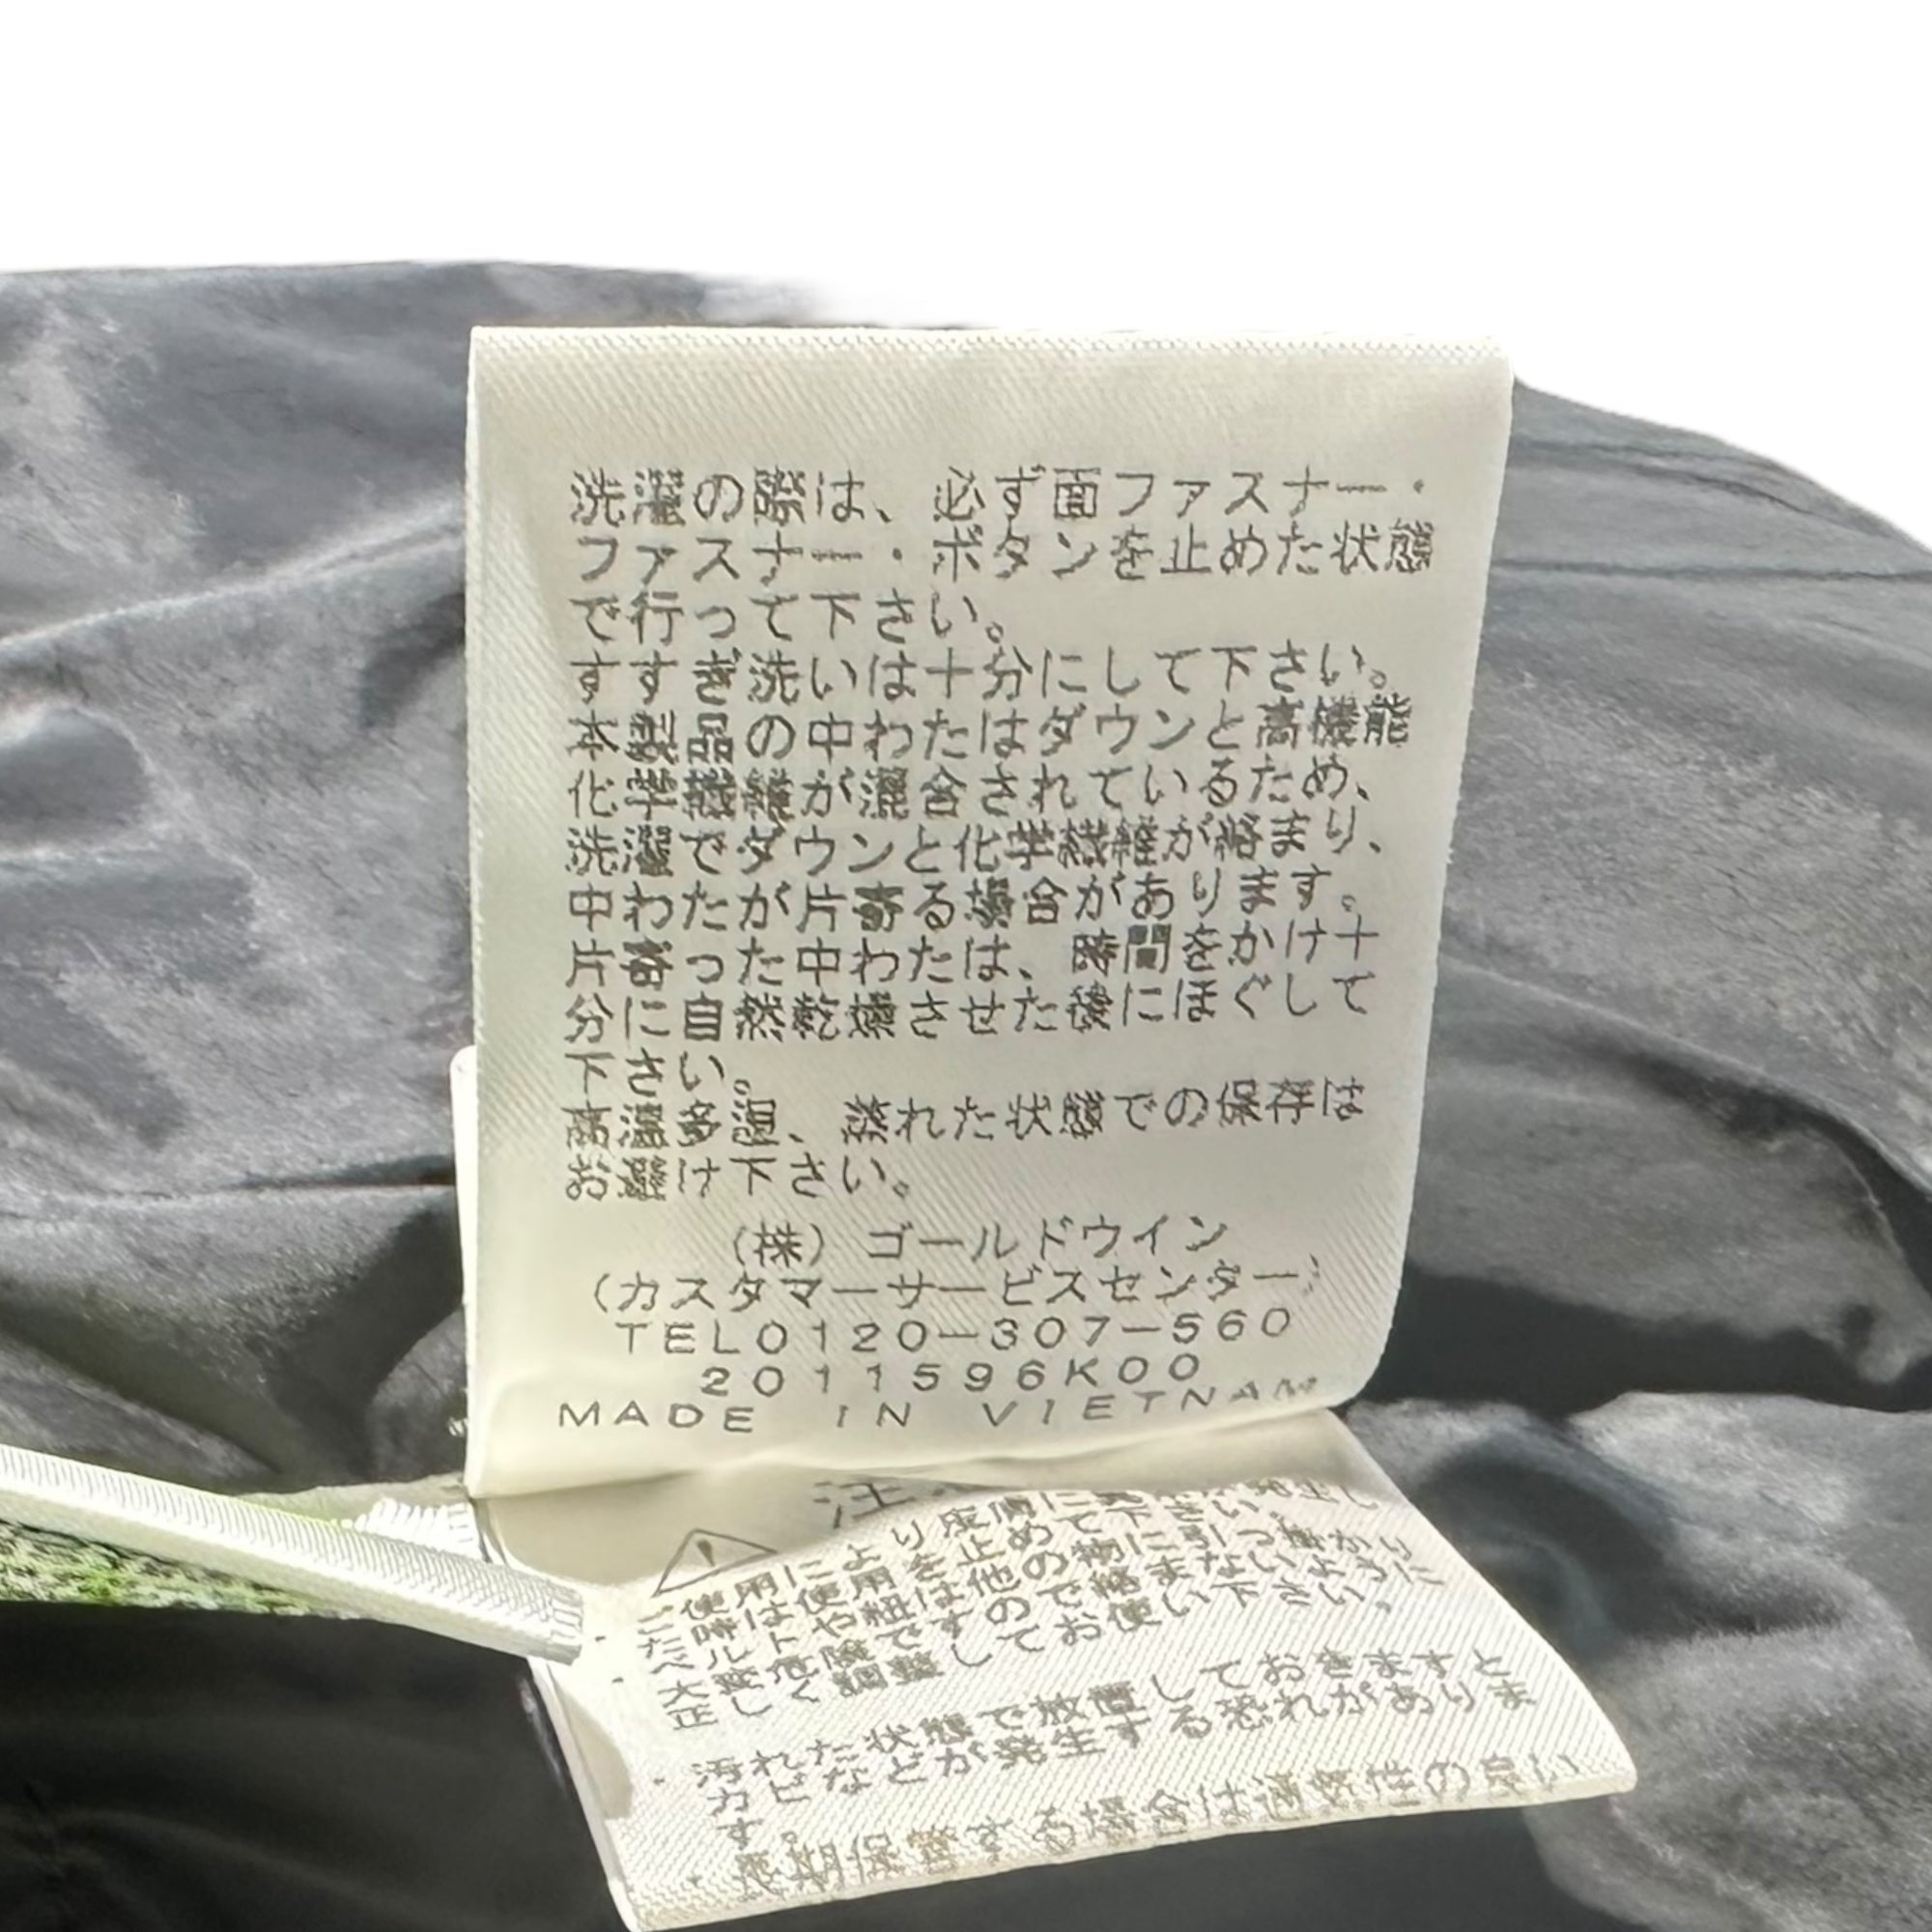 洗濯の際は、必ず面ファスナー・
ファスナー・ボタンを止めた状態
で行って下さい。
すすぎ洗いは十分にして下さい。
本製品の中わたはダウンと高機能
化学繊維が混合されているため、
洗濯でダウンと化学繊維が絡まり、
中わたが片寄る場合があります。
片寄った中わたは、時間をかけ十
分に自然乾燥させた後にほぐして
下さい。
高温多湿、濡れた状態での保存は
お避け下さい。
(株)ゴールドウイン
(カスタマーサービスセンター)
TEL0120-307-560
2011596K00
MADE IN VIETNAM
注
ご使用により
だ時は使用を止めて下さい。
ベルトや紐は他の物に引っ
大変危険ですので絡まないように
正しく調整してお使い下さい。
・汚れた状態で放置しておきますと
カビなどが発生する恐れがありま
す。